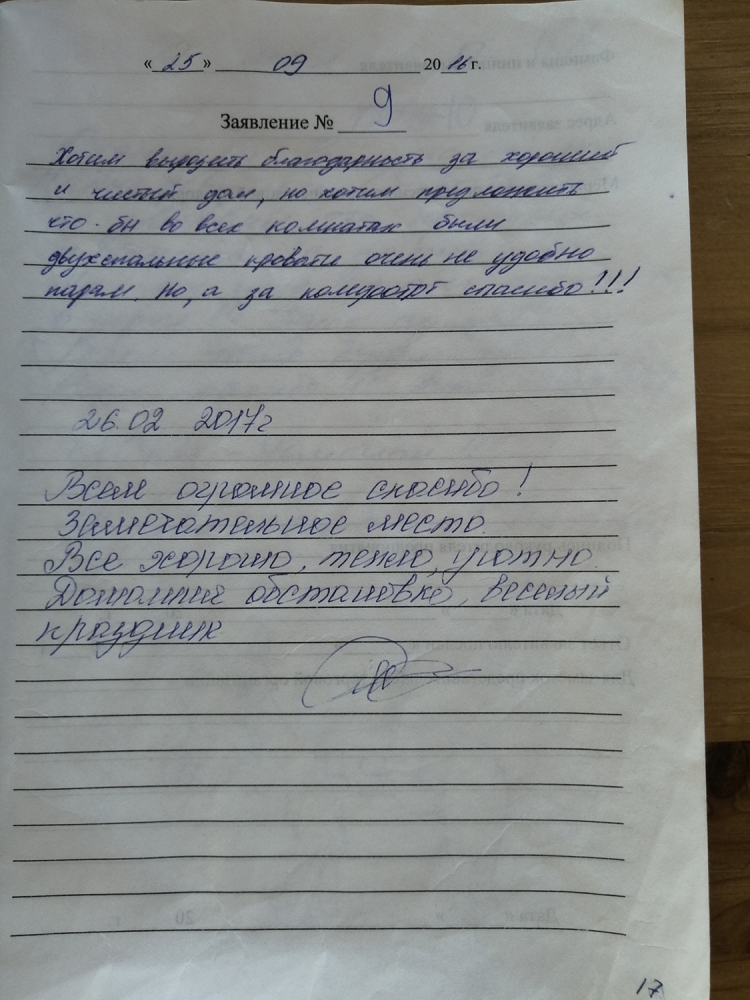 « 25 » 09 2016 г.
Заявление № 9
Хотим выразить благодарность за хороший
и чистый дом, но хотим предложить
что-бы во всех комнатах были
двухспальные кровати очень не удобно
парам. Но, а за комфорт спасибо!!!
26.02 2017г
Всем огромное спасибо!
Замечательное место.
Все хорошо, тепло, уютно.
Домашняя обстановка, веселый
праздник
17